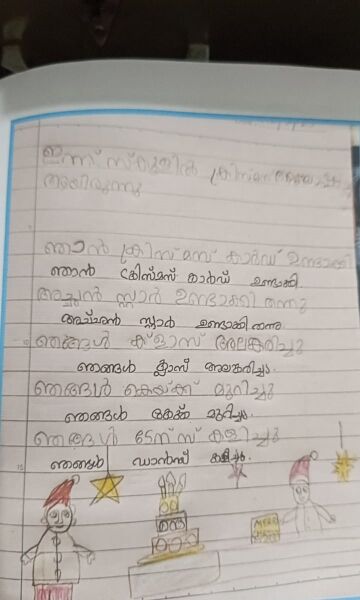 ഇന്ന് സ്കൂളിൽ ക്രിസ്മസ്
ആയിരുന്നു
ഞാൻ ക്രിസ്മസ് കാർഡ് ഉണ്ടാക്കി
ഞാൻ ക്രിസ്മസ് കാർഡ് ഉണ്ടാക്കി.
അച്ചൻ സ്റ്റാർ ഉണ്ടാക്കി തന്നു
അച്ഛൻ സ്റ്റാർ ഉണ്ടാക്കി തന്നു
ഞങ്ങൾ ക്ളാസ് അലങ്കരിച്ചു
ഞങ്ങൾ ക്ലാസ് അലങ്കരിച്ചു.
ഞങ്ങൾ കെയ്ക്ക് മുറിച്ചു
ഞങ്ങൾ കേക്ക് മുറിച്ചു.
ഞങ്ങൾ ടേന്സ് കളിച്ചു
ഞങ്ങൾ ഡാൻസ് കളിച്ചു.